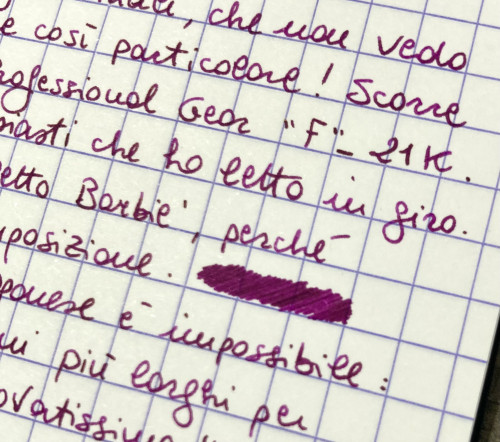 che non vedo
e così particolare! Scorre
rofessional Gear "F" - 21K.
niasti che ho letto in giro.
etto Barbie", perché
posizione.
ponese è impossibile:
ui più larghi per
ovatissimo